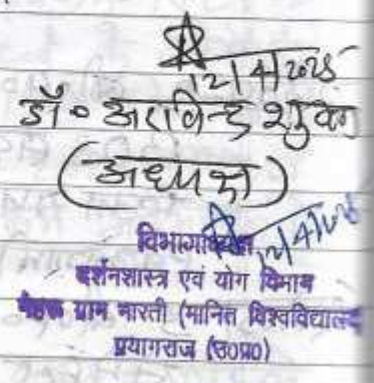 12/4/2025
डॉ० अरविन्द शुक्ल
(अध्यक्ष)
विभागाध्यक्ष 12/4/
दर्शनशास्त्र एवं योग विभाग
नेहरू ग्राम भारती (मानित विश्वविद्यालय
प्रयागराज (उ०प्र०)